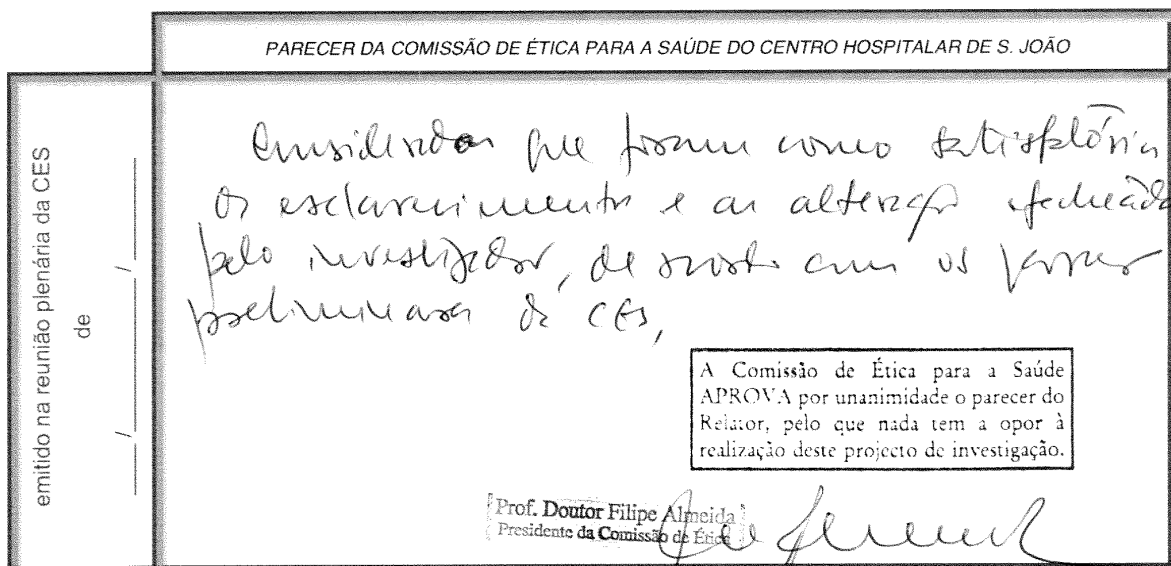 PARECER DA COMISSÃO DE ÉTICA PARA A SAÚDE DO CENTRO HOSPITALAR DE S. JOÃO
emitido na reunião plenária da CES
de ____/____/____
que foram como
os esclarecimentos e as
pelo investigador, de com os
preliminares da CES,
A Comissão de Ética para a Saúde
APROVA por unanimidade o parecer do
Relator, pelo que nada tem a opor à
realização deste projecto de investigação.
Prof. Doutor Filipe Almeida
Presidente da Comissão de Ética